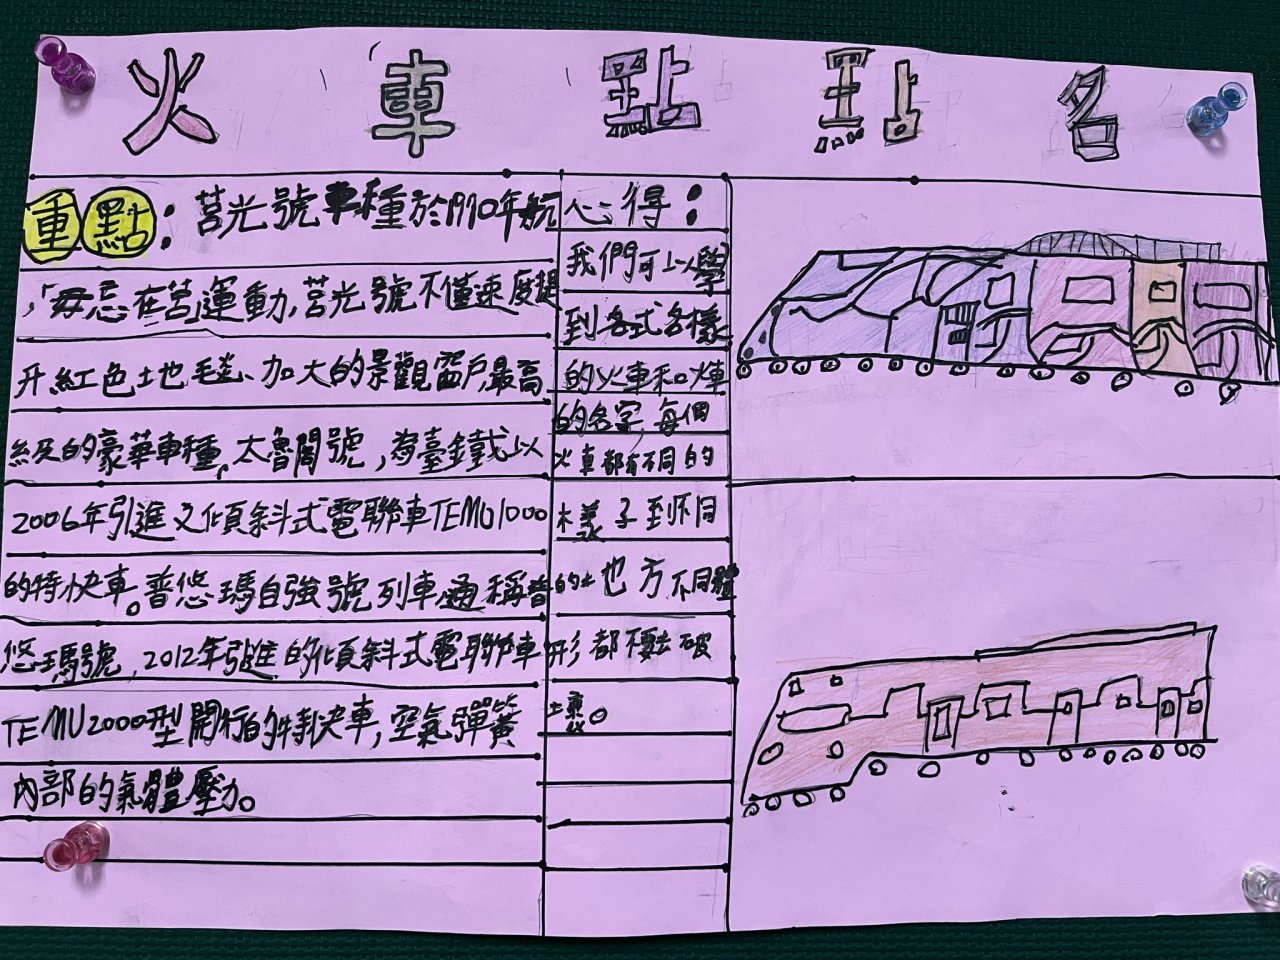 火車點點名
重點：莒光號車種於1970年航
，「毋忘在莒」運動，莒光號不僅速度提
升紅色地毯、加大的景觀窗戶最高
級的豪華車種。太魯閣號，為臺鐵以
2006年引進之傾斜式電聯車TEMU1000
的特快車。普悠瑪自強號列車通稱普
悠瑪號，2012年引進的傾斜式電聯車
TEMU2000型開行的特快車，空氣彈簧
內部的氣體壓力。
心得：
我們可以學
到各式各樣
的火車和火車
的名字，每個
火車都有不同的
樣子到不同
的地方不同體
形都不要去破
壞。